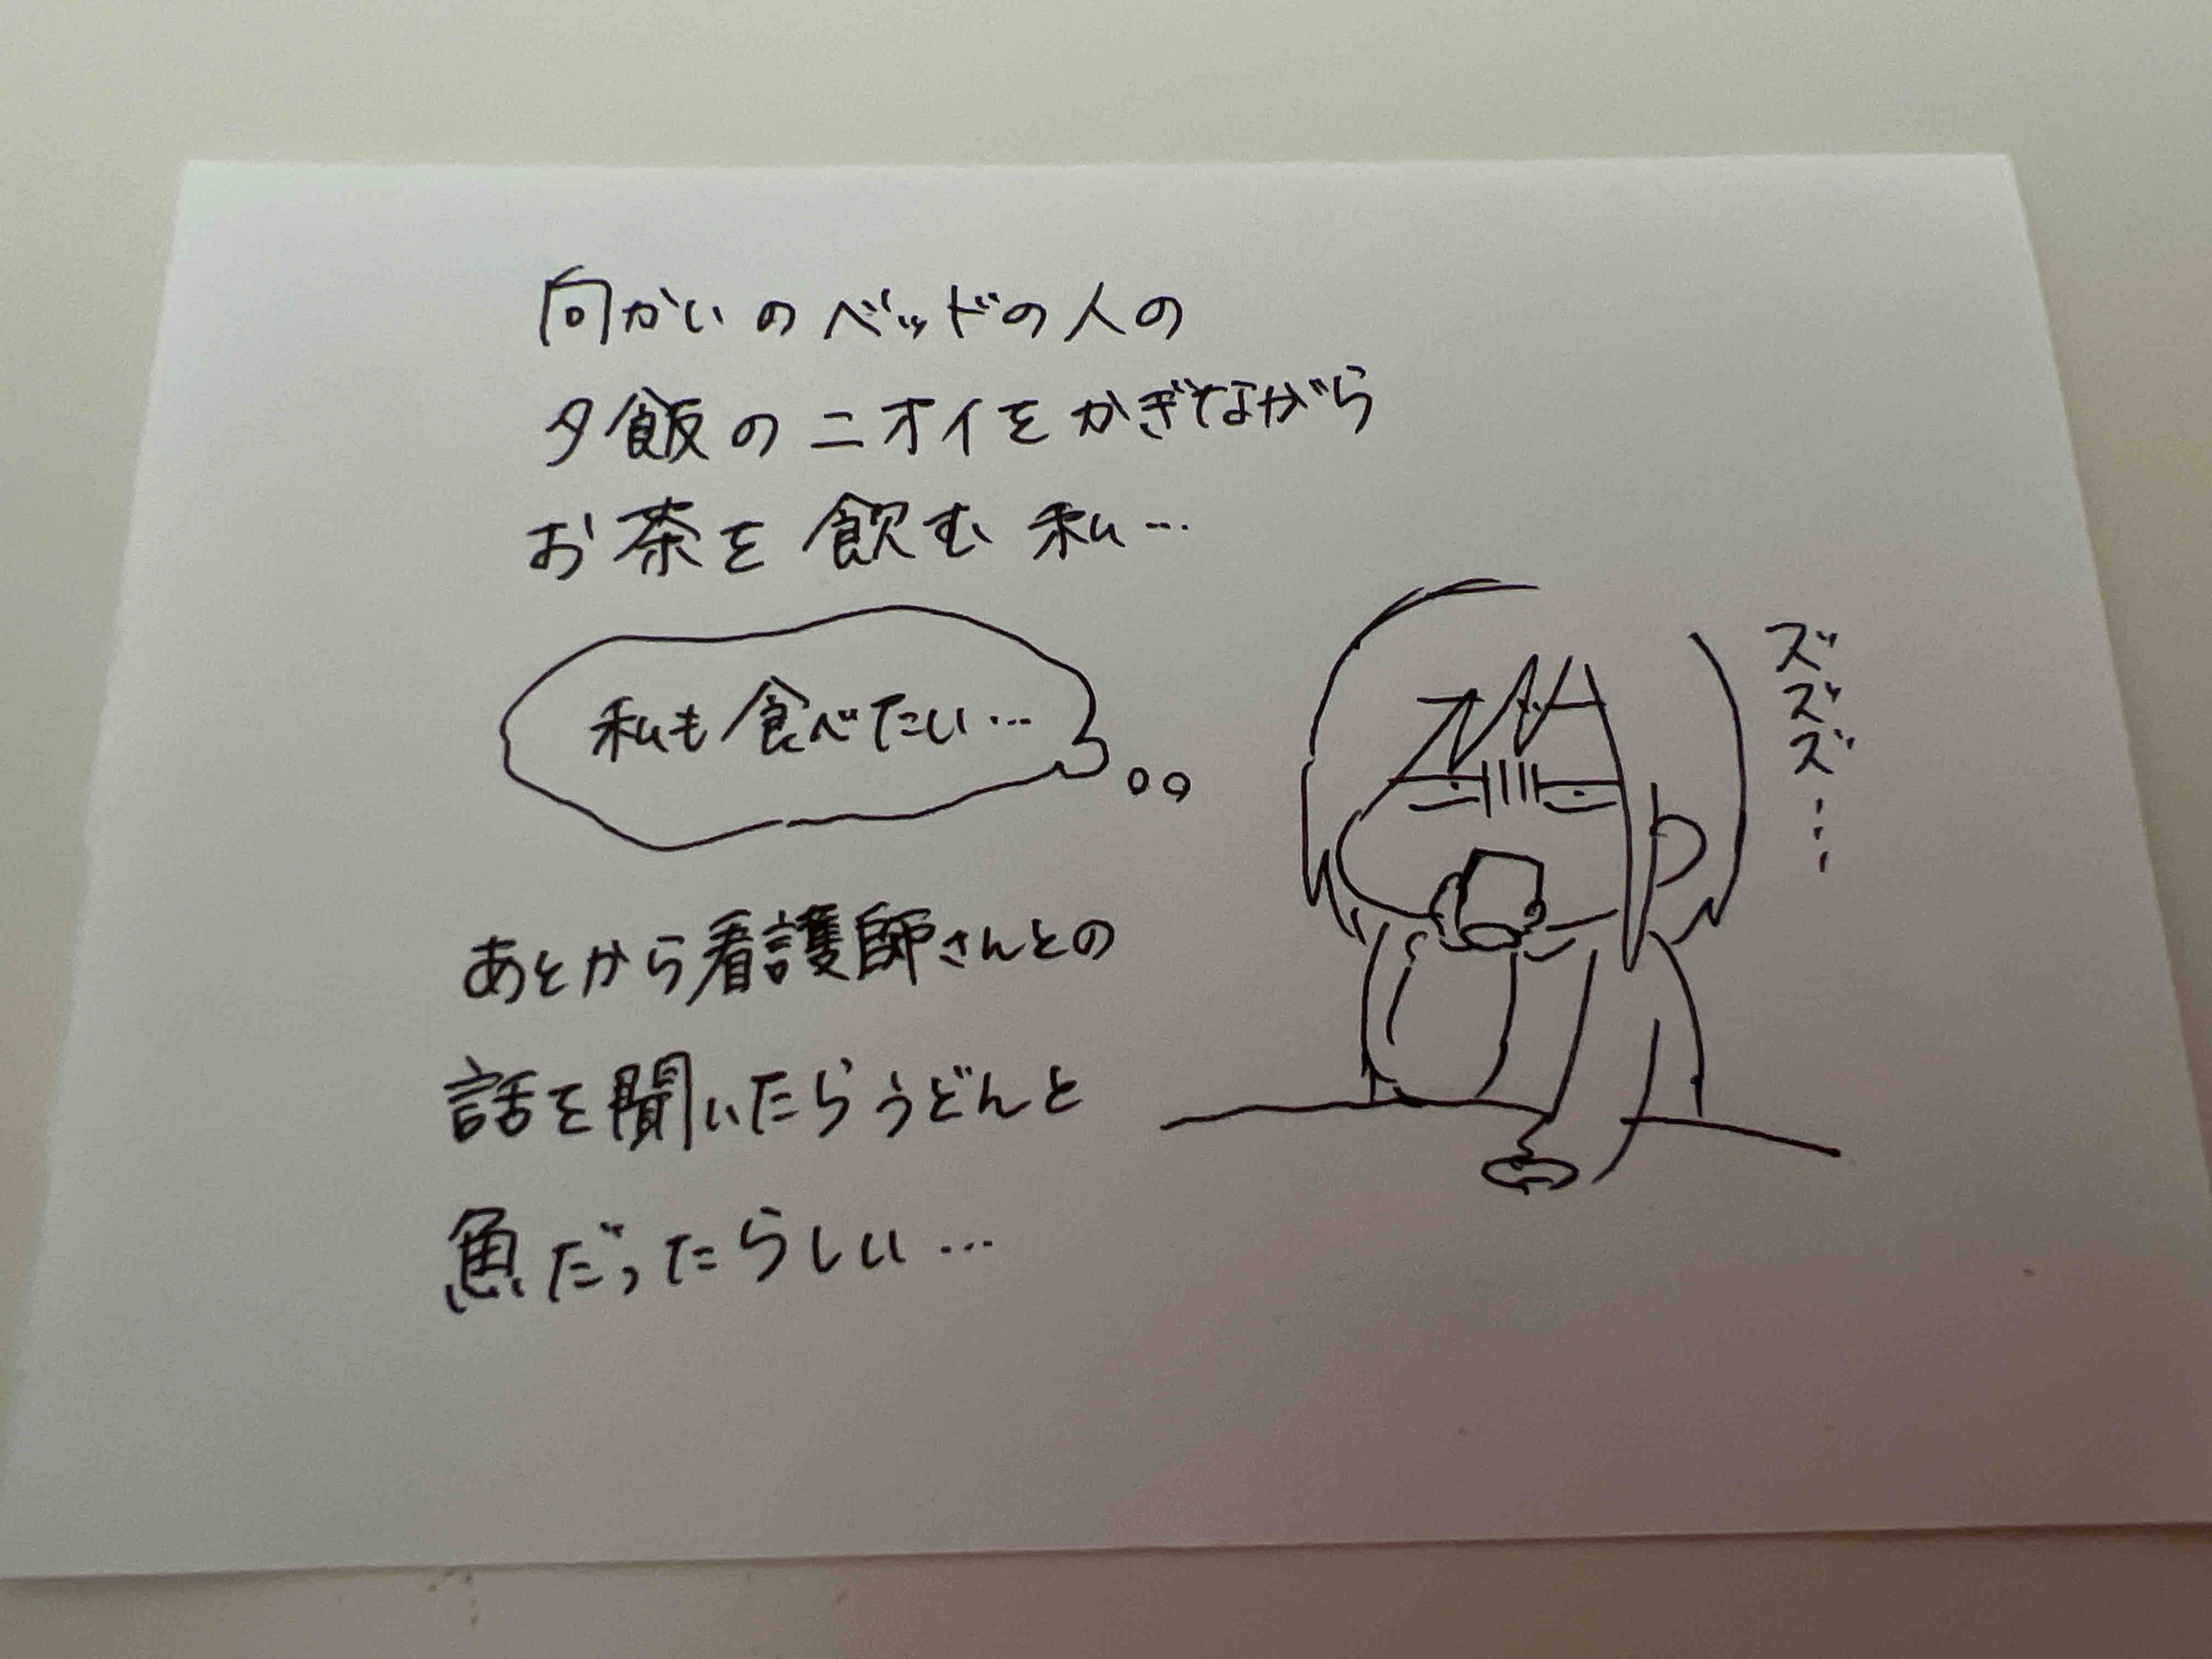 向かいのベッドの人の
夕飯のニオイをかぎながら
お茶を飲む私…
私も食べたい…
ズズズ…
あとから看護師さんとの
話を聞いたらうどんと
魚だったらしい…